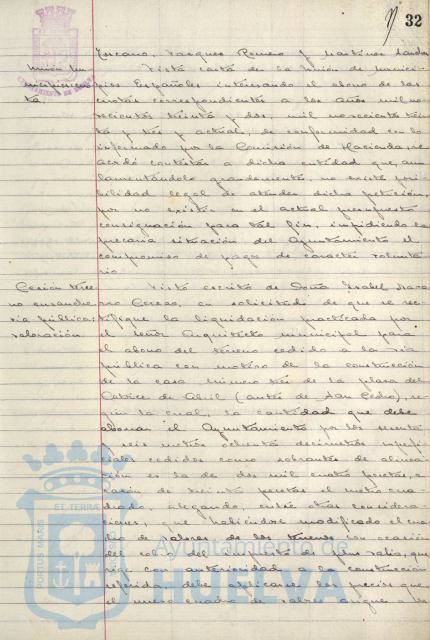 32
Toscano, Vazquez Romero y Martinez Sanchez
Unión Mu
nicipalis
ta
Vista carta de la Unión de Munici-
pios Españoles interesando el abono de las
cuotas correspondientes a los años mil no-
vecientos treinta y dos, mil novecientos trein
ta y tres y actual, de conformidad con lo
informado por la Comisión de Hacienda, se
acordó contestar a dicha entidad que, aun
lamentándolo grandemente, no existe posi-
bilidad legal de atender dicha petición,
por no existir en el actual presupuesto
consignación para tal fin, impidiendo la
precaria situación del Ayuntamiento el
compromiso de pagos de caracter volunta
rio
Cesión terre
no ensanche
vía pública:
valoración
Vista escrito de Doña Isabel Nava
rro Cerezo, en solicitud de que se rec-
tifique la liquidación practicada por
el Señor Arquitecto municipal para
el abono del terreno cedido a la vía
pública con motivo de la construcción
de la casa número tres de la plaza del
Catorce de Abril (antes de San Pedro), se-
gún la cual, la cantidad que debe
abonar el Ayuntamiento por los sesenta
y seis metros ochenta decímetros superfi-
ciales cedidos como sobrantes de alinea-
ción es la de dos mil cuatro pesetas, a
razón de treinta pesetas el metro cua-
drado, alegando, entre otras considera-
ciones, que habiéndose modificado el cua
dro de valores de los terrenos con ocasión
del cobro del arbitrio de plus valía, que
rige con anterioridad a la construcción
referida, debe aplicarse los precios que
el nuevo cuadro de valores asigne a los
PORTUS MARIS ET TERRAE
Ayuntamiento de
HUELVA